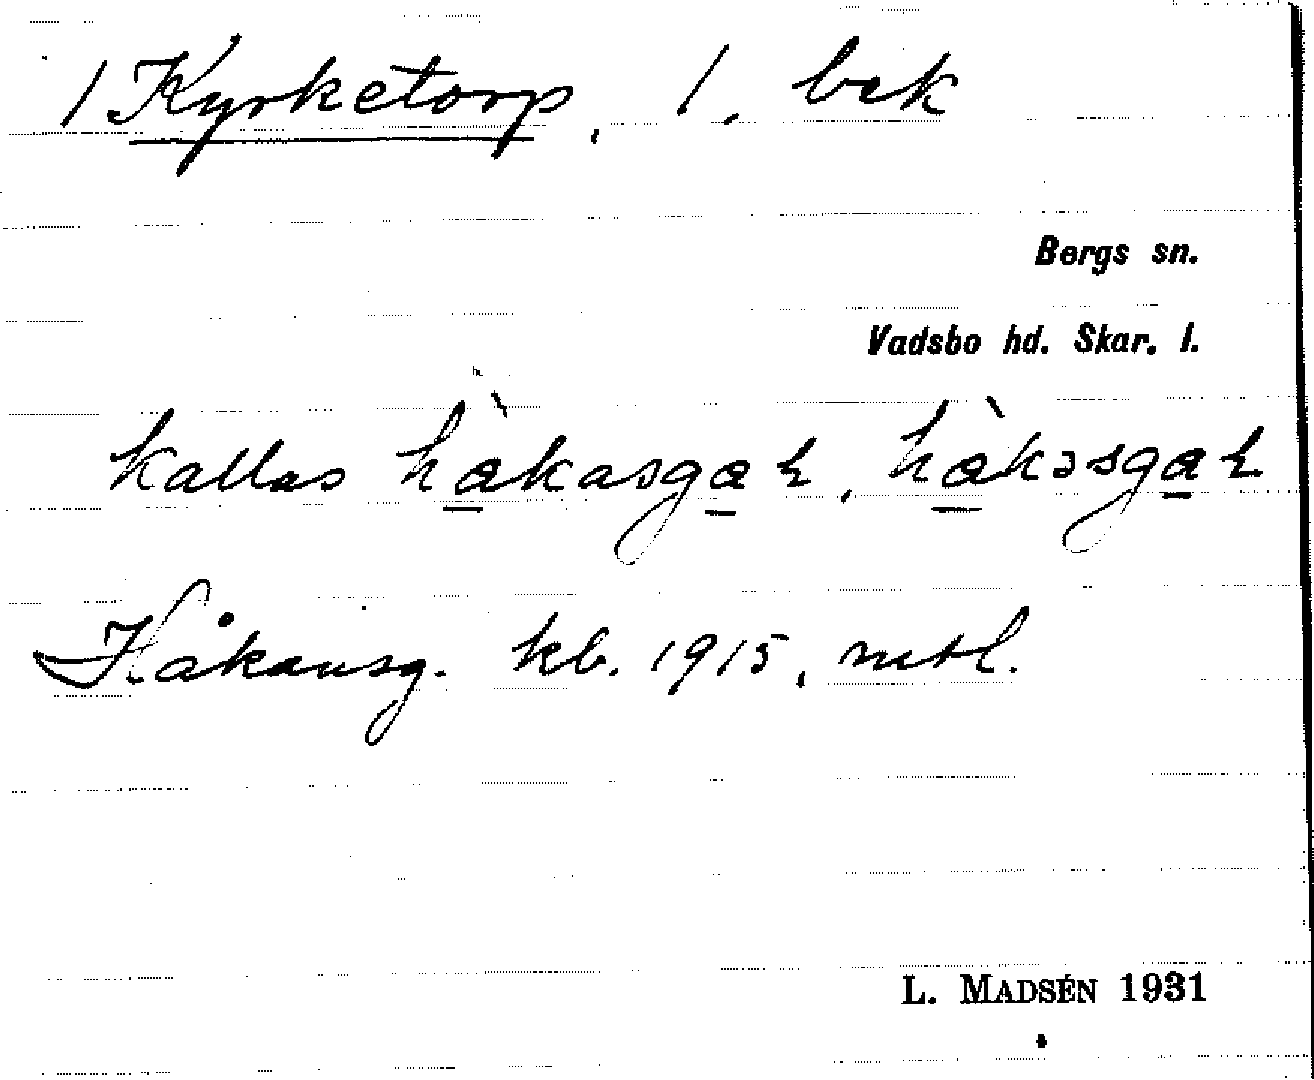 1 Kyrketorp, 1, bek
Bergs sn.
Vadsbo hd. Skar. l.
kallas hàkasgaɽ, hàkəsgaɽ
Håkansg. kb. 1915, mtl.
L. MADSÉN 1931